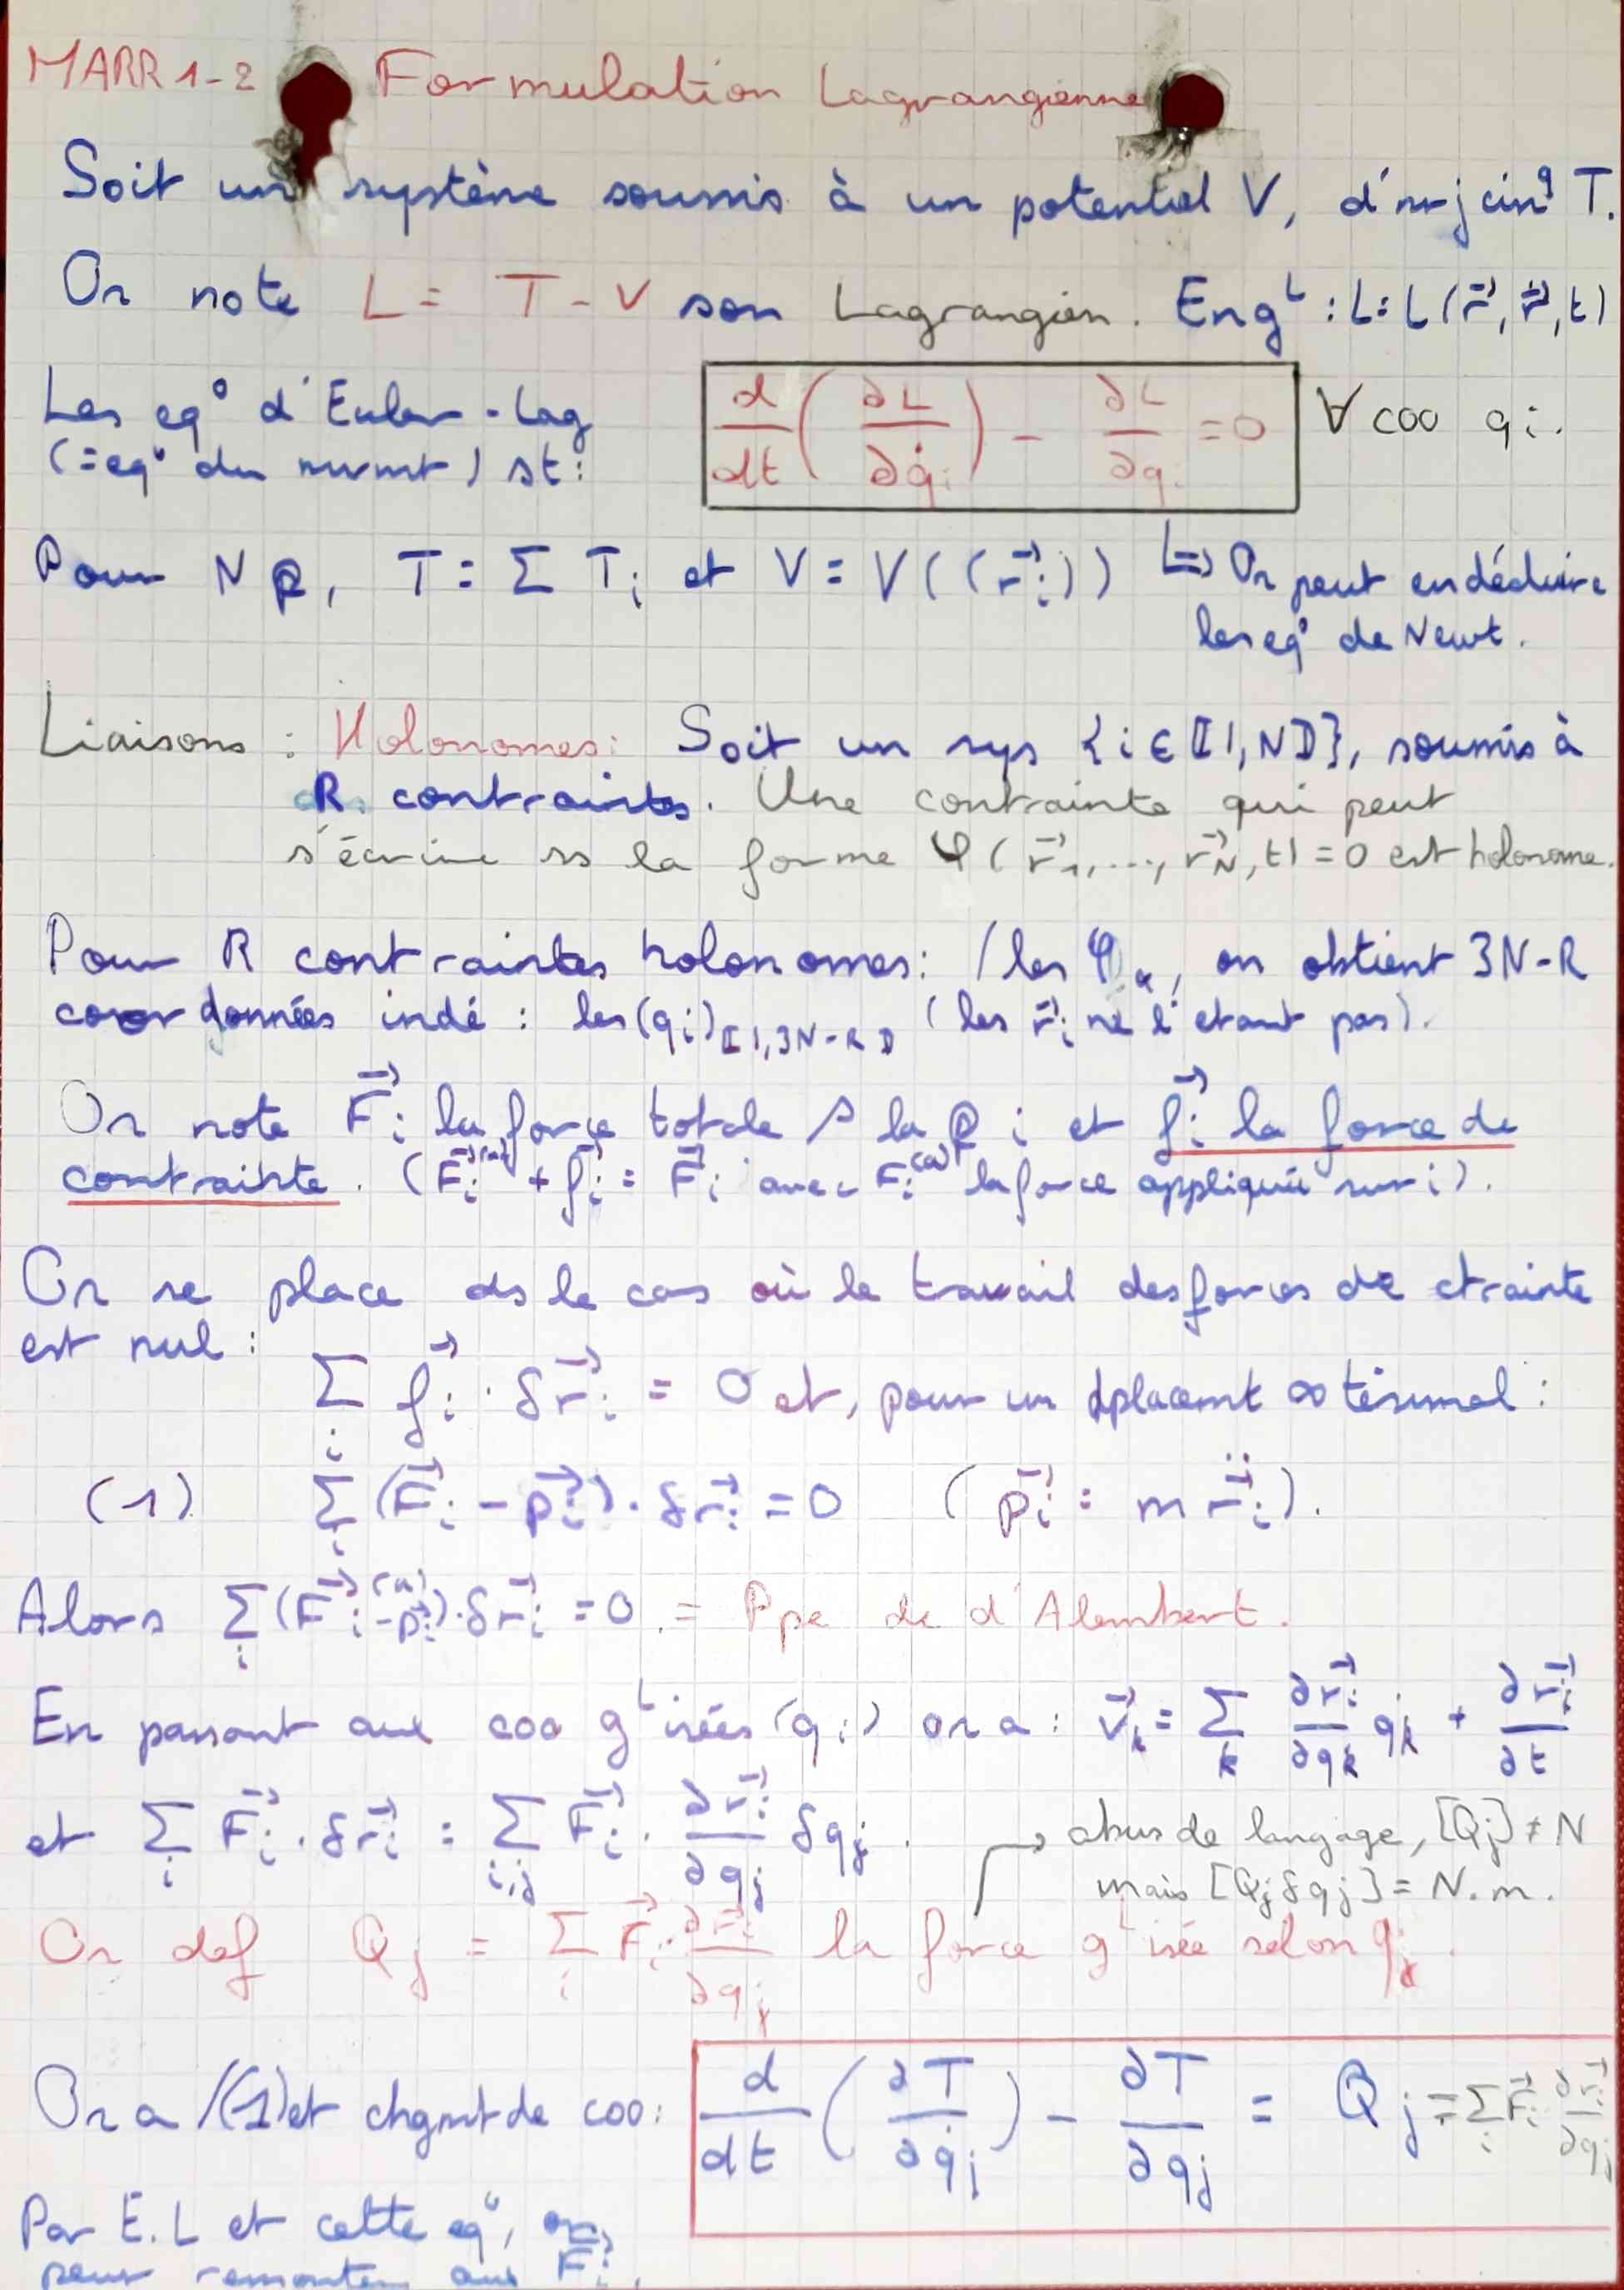 MARR 1-2 Formulation Lagrangienne
Soit un système soumis à un potentiel V, d'nrj cinq T.
On note L = T - V son Lagrangien. Engᴸ : L = L(r⃗, ṙ⃗, t)
Les eq° d'Euler-Lag
(= eq° du mvmt) st :
d/dt (∂L/∂q̇i) - ∂L/∂qi = 0 ∀ coo qi.
Pour N ℗, T = Σ Ti et V = V((r⃗i)) ↳ On peut en déduire
les eq° de Newt.
Liaisons : Holonomes : Soit un sys {i ∈ ⟦1,N⟧}, soumis à
R contraintes. Une contrainte qui peut
s'écrire ss la forme φ(r⃗1, ..., r⃗N, t) = 0 est holonome.
Pour R contraintes holonomes : / les φα, on obtient 3N-R
coordonnées indé : les (qi)⟦1,3N-R⟧ (les r⃗i ne l'étant pas).
On note F⃗i la force totale s la ℗ i et f⃗i la force de
contrainte. (F⃗i(a) + f⃗i = F⃗i avec F⃗i(a) la force appliquée sur i).
On se place ds le cas où le travail des forces de ctrainte
est nul :
Σi f⃗i · δr⃗i = 0 et, pour un dplacemt ∞tésimal :
(1) Σi (F⃗i - p⃗i) · δr⃗i = 0 (p⃗i = m r̈⃗i).
Alors Σi (F⃗i(a) - p⃗i) · δr⃗i = 0 = Ppe de d'Alembert.
En passant aux coo gᴸisées (qi) on a : v⃗i = Σk ∂r⃗i/∂qk q̇k + ∂r⃗i/∂t
et Σi F⃗i · δr⃗i = Σi,j F⃗i · ∂r⃗i/∂qj δqj.
→ abus de langage, [Qj] ≠ N
mais [Qj δqj] = N.m.
On def Qj = Σi F⃗i · ∂r⃗i/∂qj la force gᴸisée selon qj.
On a /(1) et chgmt de coo : d/dt (∂T/∂q̇j) - ∂T/∂qj = Qj = Σi F⃗i ∂r⃗i/∂qj
Par E.L et cette eq°, on
peut remonter aux F⃗i.